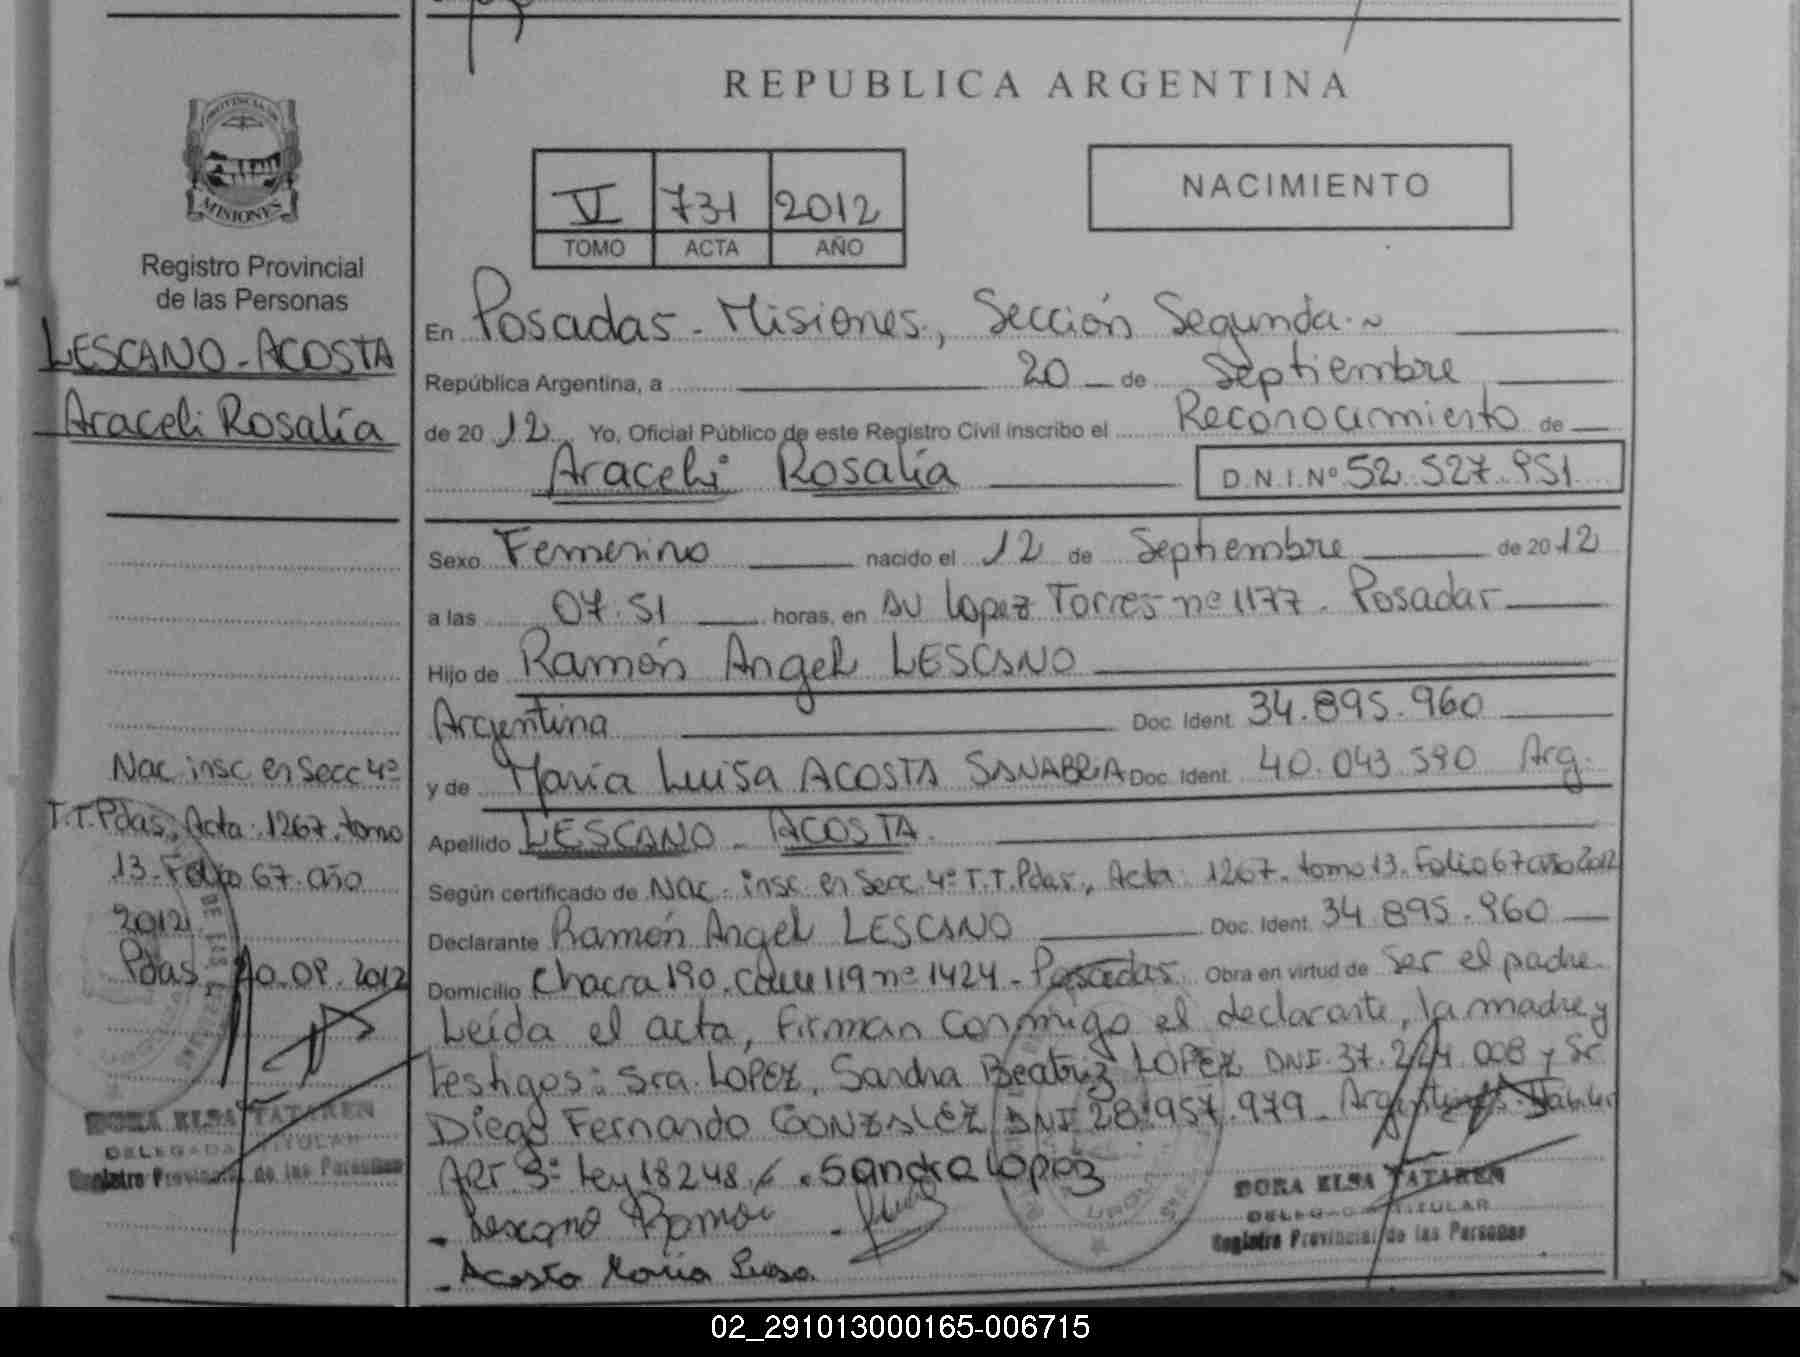 REPUBLICA ARGENTINA
PROVINCIA DE
MISIONES
Registro Provincial
de las Personas
V 731 2012
TOMO ACTA AÑO
NACIMIENTO
LESCANO - ACOSTA
Araceli Rosalía
En Posadas - Misiones, Sección Segunda.~
República Argentina, a 20 de Septiembre
de 20 12 Yo, Oficial Público de este Registro Civil inscribo el Reconocimiento de
Araceli Rosalía D.N.I.Nº 52.527.951
Sexo Femenino nacido el 12 de Septiembre de 20 12
a las 07.51 horas, en Av Lopez Torres nº 1177. Posadas
Hijo de Ramón Angel LESCANO
Argentina Doc. Ident. 34.895.960
y de María Luisa ACOSTA SANABRIA Doc. Ident. 40.043.590 Arg.
Apellido LESCANO - ACOSTA.
Según certificado de Nac. insc. en Secc. 4ª T.T. Pdas., Acta: 1267. tomo 13. Folio 67 año 2012
Declarante Ramón Angel LESCANO Doc. Ident. 34.895.960
Domicilio Chacra 190. Calle 119 nº 1424 - Posadas. Obra en virtud de Ser el padre.
Leída el acta, firman conmigo el declarante, la madre y
testigos: Sra. LOPEZ, Sandra Beatriz LOPEZ DNI. 37.224.008 y Sr
Diego Fernando GONZALEZ DNI 28.957.979 - Argentinos.
Art 3º Ley 18248 . Sandra Lopez
- Lescano Ramon -
- Acosta Maria Luisa
Nac. insc en Secc 4ª
T.T. Pdas, Acta: 1267. tomo
13. Folio 67. año
2012.
Pdas. 20.09.2012
DORA ELSA TATAREN
DELEGADA TITULAR
Registro Provincial de las Personas
DORA ELSA TATAREN
DELEGADA TITULAR
Registro Provincial de las Personas
02_291013000165-006715